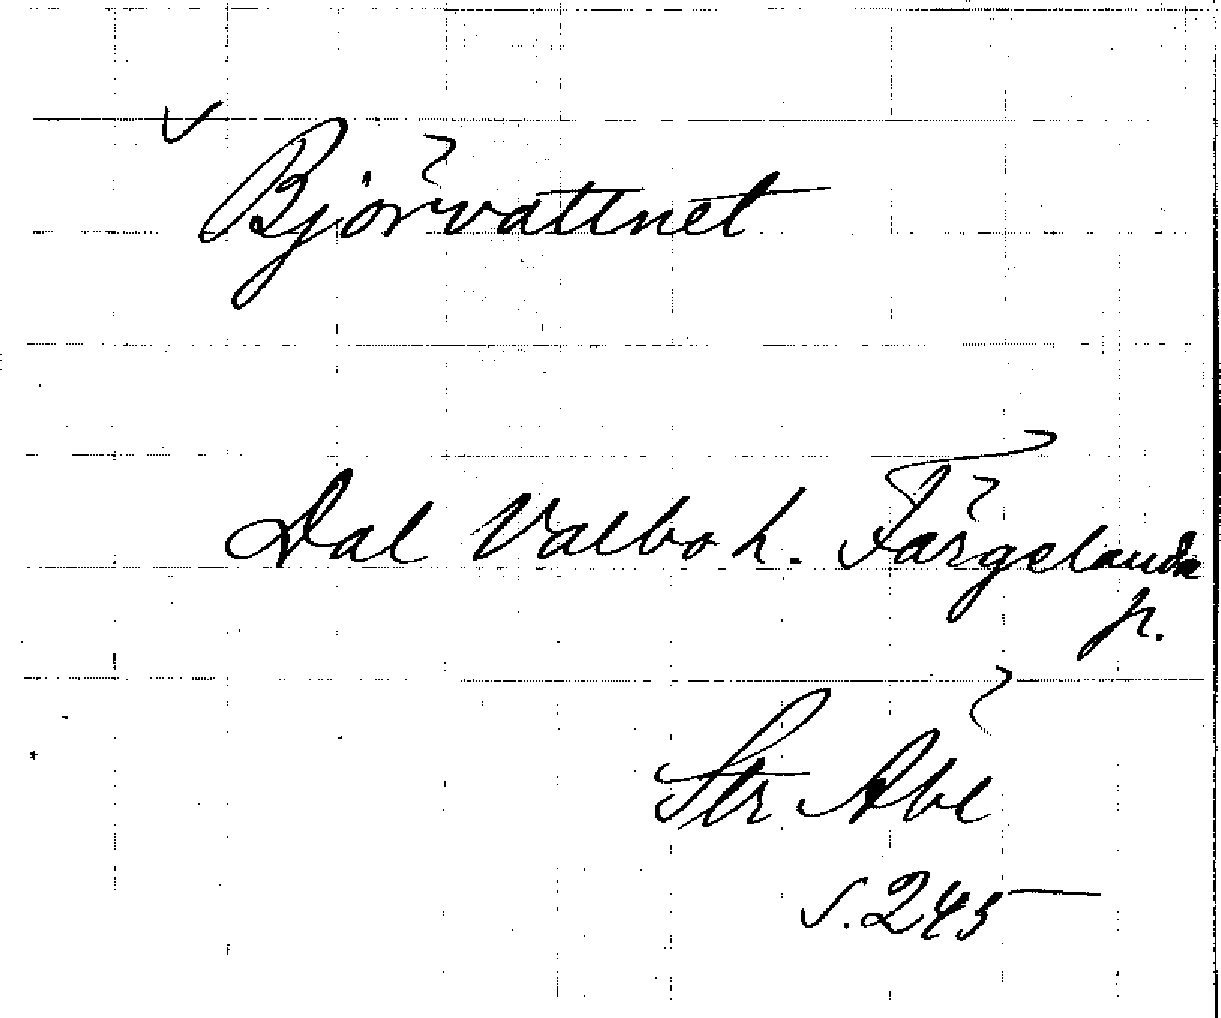 Björvattnet
Dal Valbo h. Färgelanda
p.
Str Åbé
s. 245